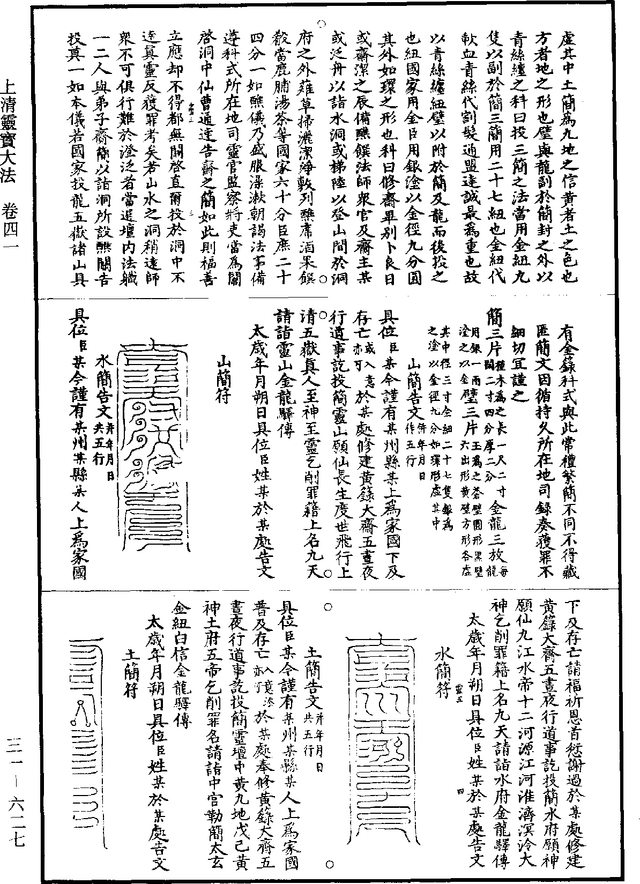 上清靈寶大法 卷四一
三一—六二七
虛其中土簡為九地之信黃者土之色也
方者地之形也璧與龍副於簡封之外以
青絲纏之科曰投三簡之法當用金紐九
隻以副於簡三簡用二十七紐也金紐代
歃血青絲代割髮通盟達誠最為重也故
以青絲纏紐璧以附於簡及龍而後投之
也紐國家用金臣用銀塗以金徑九分圓
其外如環之形也科曰修齋畢別卜良日
或齋潔之辰備醮饌法師眾官及齋主某
或泛舟以詣水洞或梯陸以登山間於洞
府之外薙草掃灑潔淨敷列醮席酒果饌
殽當鹿脯湯茶等國家六十分臣庶二十
四分一如醮儀乃盛服澡漱朝謁法事備
遵科式所在地司靈官監察將吏當為關
啓洞中仙曹通達告齋之簡如此則福善
立應却不得都無關啓直爾投於洞中不
達真靈反獲罪者矣若山水之洞稍遠師
眾不可俱行難於澄泛者當選壇內法職
一二人與弟子齋簡以詣洞所設醮關告
投奠一如本儀若國家投龍五嶽諸山具
有金籙科式與此常禮繁簡不同不得藏
匿簡文因循持久所在地司錄奏獲罪不
細切宜謹之
簡三片槿木為之長一尺二寸闊二寸四分厚二分金龍三放每龍
用銀一兩塗之以金璧三片玉為之蒼璧圓形黑璧六出形黃璧方形各虛
其中徑三寸金紐二十七隻銀為之塗以金徑九分如環形虛其中
山簡告文併年月日作五行
具位臣某今謹有某州縣某上為家國下及
存亡或入意亦可於某處修建黃籙大齋五晝夜
行道事訖投簡靈山願仙長生度世飛行上
清五嶽真人至神至靈乞削罪籍上名九天
請詣靈山金龍驛傳
太歲年月朔日具位臣姓某於某處告文
山簡符
水簡告文併年月日共五行
具位臣某今謹有某州某縣某人上為家國
下及存亡請福祈恩首愆謝過於某處修建
黃籙大齋五晝夜行道事訖投簡水府願神
願仙九江水帝十二河源江河淮濟溟泠大
神乞削罪籍上名九天請詣水府金龍驛傳
太歲年月朔日具位臣姓某於某處告文
水簡符
土簡告文併年月日共五行
具位臣某今謹有某州某縣某人上為家國
普及存亡入意亦可於某處奉修黃籙大齋五
晝夜行道事訖投簡靈壇中黃九地戊己黃
神土府五帝乞削罪名請詣中宮勒簡太玄
金紐自信金龍驛傳
太歲年月朔日具位臣姓某於某處告文
土簡符